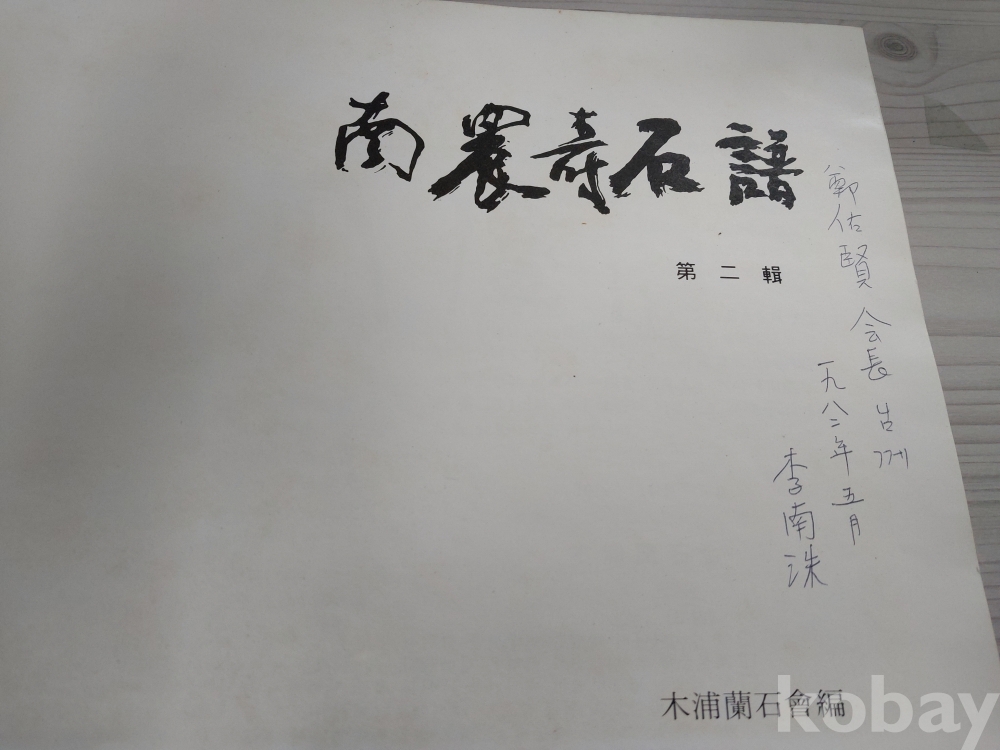 南農奇石譜
第二輯
鄭佑賢 会長 님께
一九八二年 五月
李南洙
木浦蘭石會編
kobay